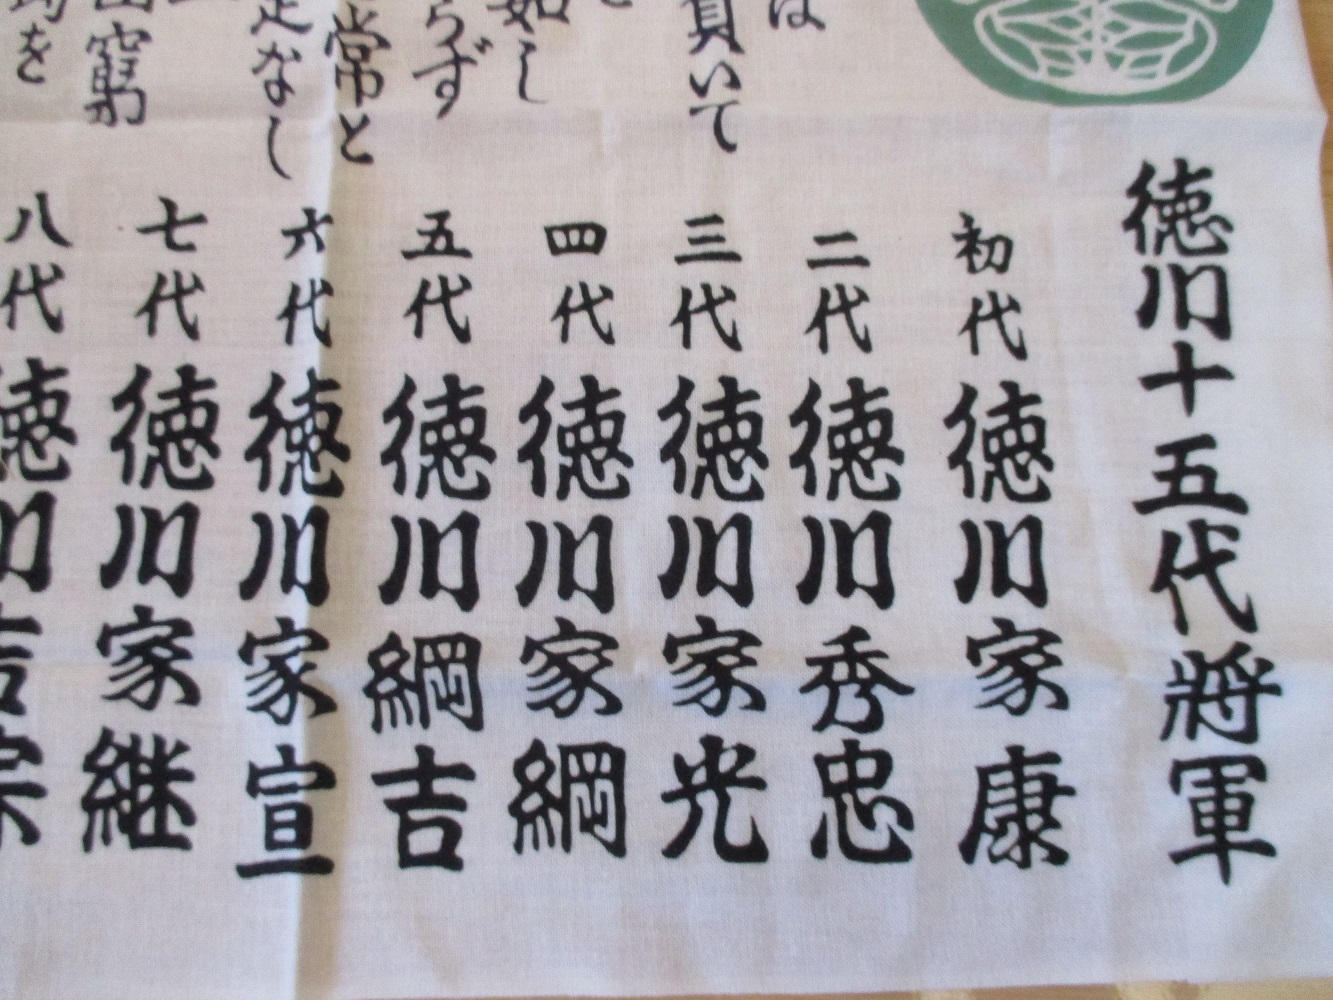 は
負いて
如し
らず
常と
足なし
窮
を
徳川十五代将軍
初代 徳川家康
二代 徳川秀忠
三代 徳川家光
四代 徳川家綱
五代 徳川綱吉
六代 徳川家宣
七代 徳川家継
八代 徳川吉宗